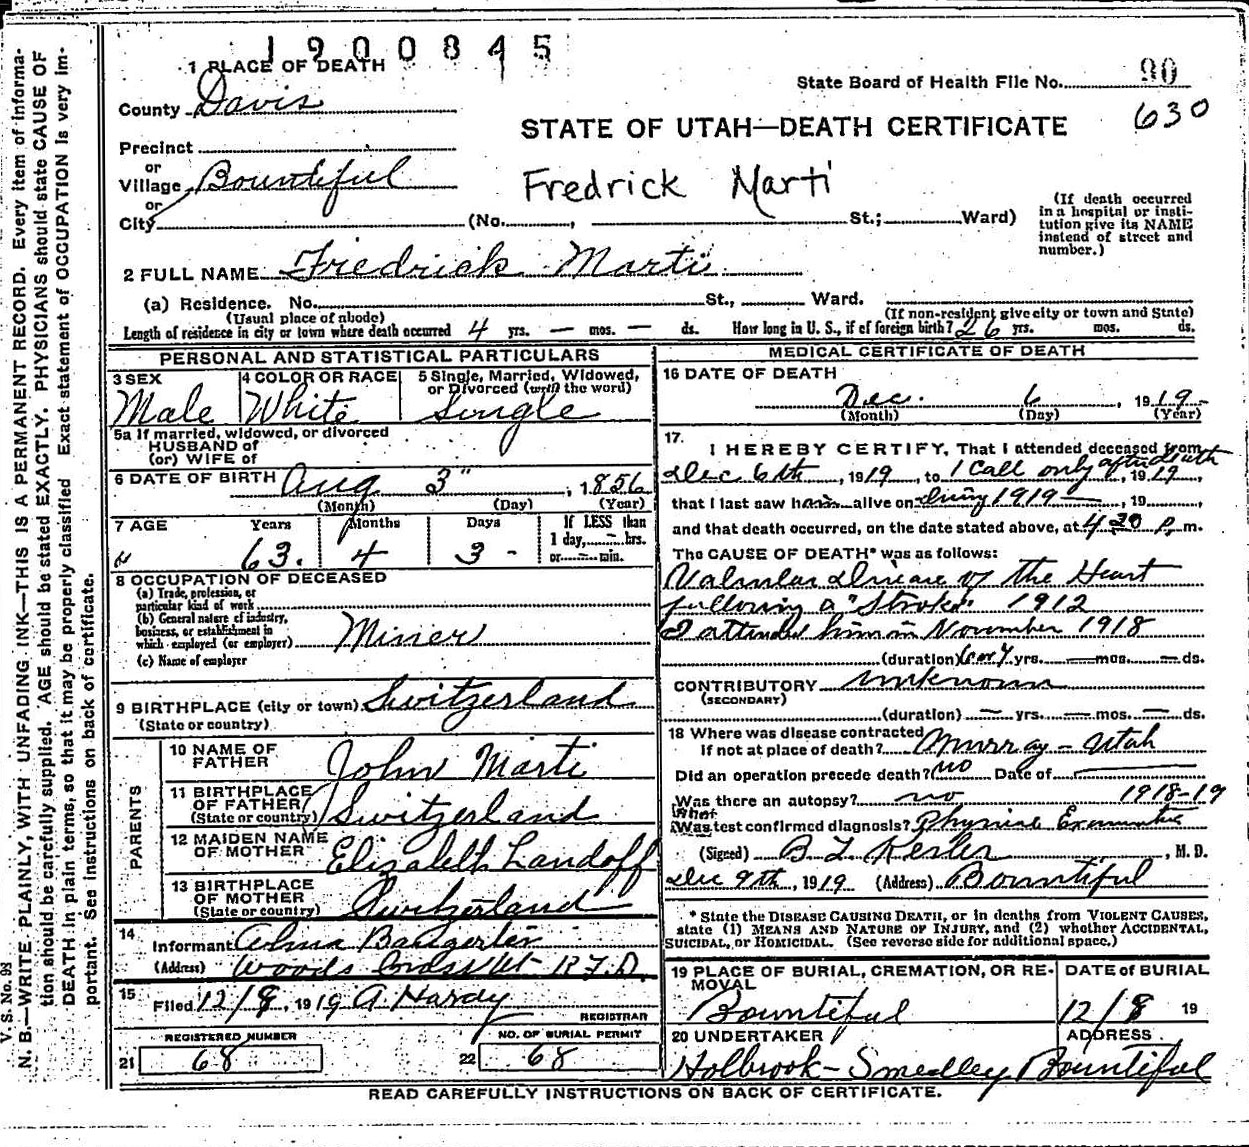 1900845
1 PLACE OF DEATH
State Board of Health File No. 90
County Davis
630
STATE OF UTAH—DEATH CERTIFICATE
Precinct
or
Village Bountiful
Fredrick Marti
or
City (No. , St.; Ward)
(If death occurred in a hospital or insti-
tution give its NAME
instead of street and
number.)
2 FULL NAME Fredrick Marti
(a) Residence. No. St., Ward.
(Usual place of abode) (If non-resident give city or town and State)
Length of residence in city or town where death occurred 4 yrs. — mos. — ds. How long in U. S., if of foreign birth? 26 yrs. mos. ds.
PERSONAL AND STATISTICAL PARTICULARS
3 SEX Male
4 COLOR OR RACE White
5 Single, Married, Widowed, or Divorced (write the word) Single
5a If married, widowed, or divorced
HUSBAND of
(or) WIFE of
6 DATE OF BIRTH Aug 3" , 1856
(Month) (Day) (Year)
7 AGE Years Months Days If LESS than
1 day, — hrs.
63. 4 3 - or — min.
8 OCCUPATION OF DECEASED
(a) Trade, profession, or
particular kind of work
(b) General nature of industry,
business, or establishment in
which employed (or employer) Miner
(c) Name of employer
9 BIRTHPLACE (city or town) Switzerland
(State or country)
PARENTS
10 NAME OF FATHER John Marti
11 BIRTHPLACE OF FATHER (State or country) Switzerland
12 MAIDEN NAME OF MOTHER Elizabeth Landoff
13 BIRTHPLACE OF MOTHER (State or country) Switzerland
14 Informant Alma Bangerter
(Address) Woods Cross Ut R.F.D.
15 Filed 12/8, 1919 A Hardy
REGISTRAR
REGISTERED NUMBER
21 68
NO. OF BURIAL PERMIT
22 68
MEDICAL CERTIFICATE OF DEATH
16 DATE OF DEATH
Dec. 6 , 1919-
(Month) (Day) (Year)
17. I HEREBY CERTIFY, That I attended deceased from
Dec 6th , 1919, to 1 Call only after death, 1919,
that I last saw him alive on 1919 — , 19 ,
and that death occurred, on the date stated above, at 4 30 P. m.
The CAUSE OF DEATH* was as follows:
Valvular Disease of the Heart
following a "Stroke" 1912
I attended him in November 1918
(duration) 6 or 7 yrs. — mos. — ds.
CONTRIBUTORY unknown
(SECONDARY)
(duration) — yrs. — mos. — ds.
18 Where was disease contracted
if not at place of death? Murray - Utah
Did an operation precede death? no Date of
Was there an autopsy? no 1918-19
What test confirmed diagnosis? Physical Examination
(Signed) B L Kesler , M. D.
Dec 9th, 1919 (Address) Bountiful
* State the DISEASE CAUSING DEATH, or in deaths from VIOLENT CAUSES,
state (1) MEANS AND NATURE OF INJURY, and (2) whether ACCIDENTAL,
SUICIDAL, or HOMICIDAL. (See reverse side for additional space.)
19 PLACE OF BURIAL, CREMATION, OR RE-
MOVAL Bountiful
DATE of BURIAL
12/8 19
20 UNDERTAKER ADDRESS
Holbrook-Smedley Bountiful
READ CAREFULLY INSTRUCTIONS ON BACK OF CERTIFICATE.
V. S. No. 99
N. B.—WRITE PLAINLY, WITH UNFADING INK—THIS IS A PERMANENT RECORD. Every item of informa-
tion should be carefully supplied. AGE should be stated EXACTLY. PHYSICIANS should state CAUSE OF
DEATH in plain terms, so that it may be properly classified. Exact statement of OCCUPATION is very im-
portant. See Instructions on back of certificate.